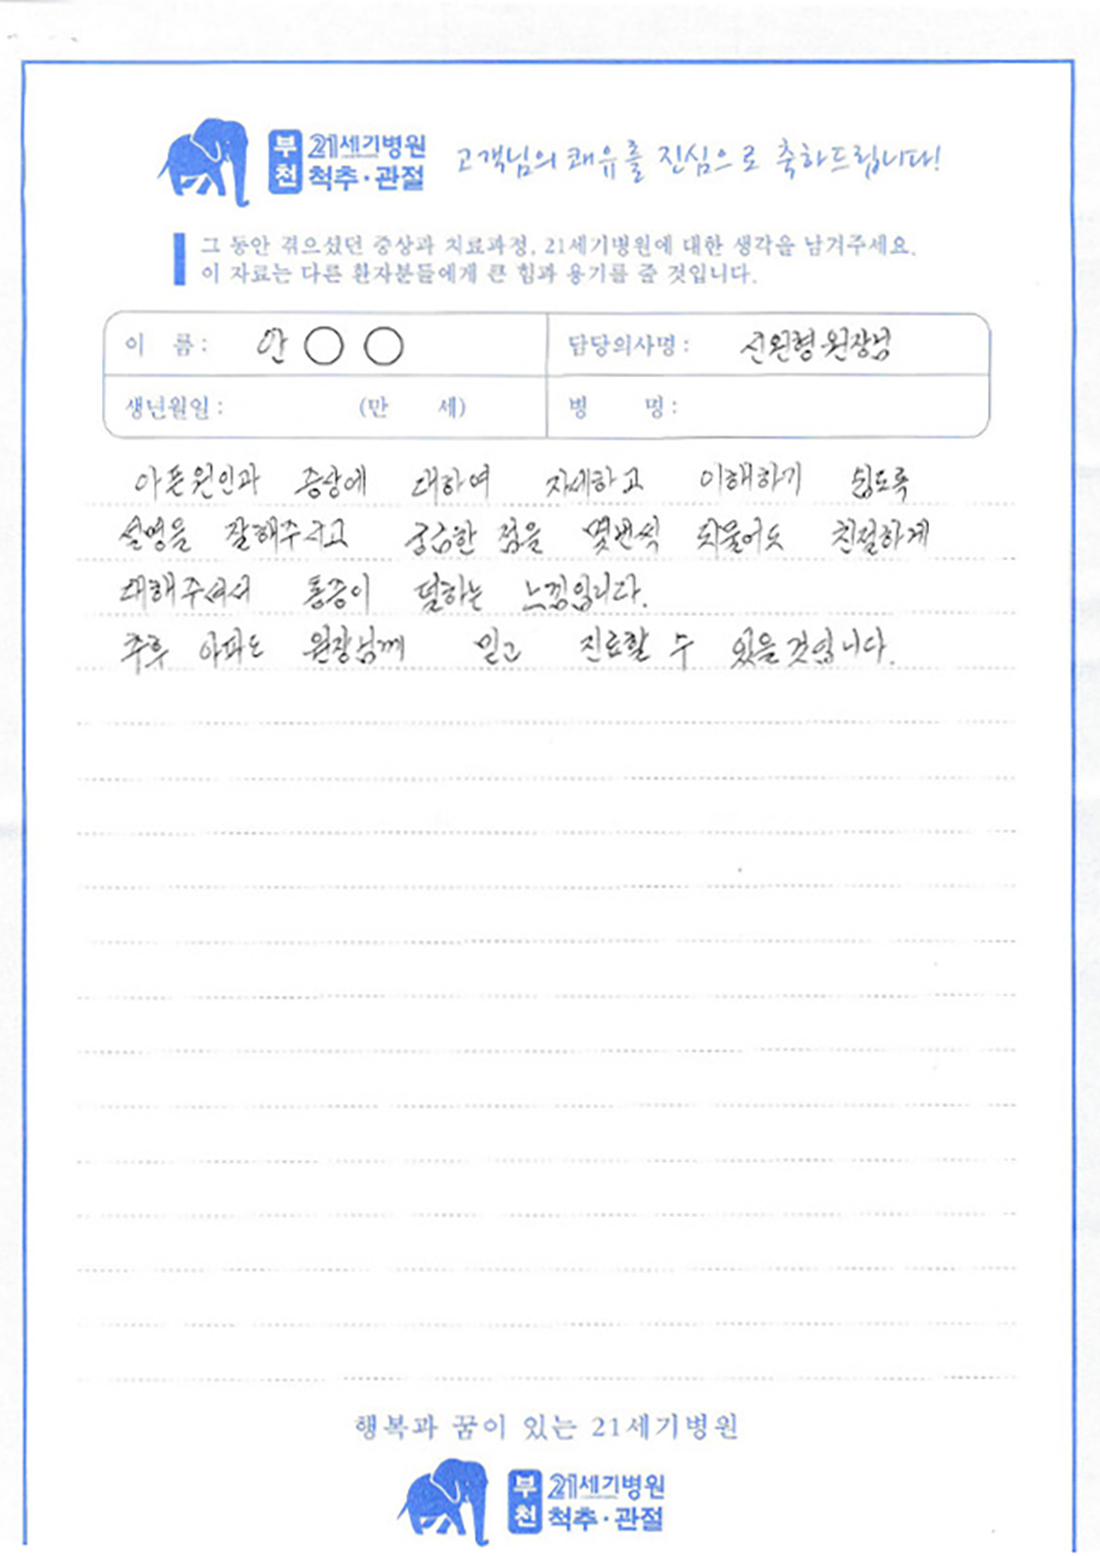 부천 21세기병원 척추·관절 고객님의 쾌유를 진심으로 축하드립니다!
그 동안 겪으셨던 증상과 치료과정, 21세기병원에 대한 생각을 남겨주세요.
이 자료는 다른 환자분들에게 큰 힘과 용기를 줄 것입니다.
이 름 : 안 ○ ○ 담당의사명 : 신원형 원장님
생년월일 : (만 세) 병 명 :
아픈원인과 증상에 대하여 자세하고 이해하기 쉽도록
설명을 잘해주시고 궁금한 점을 몇번씩 되물어도 친절하게
대해주셔서 통증이 덜하는 느낌입니다.
추후 아파도 원장님께 믿고 진료할 수 있을것입니다.
행복과 꿈이 있는 21세기병원
부천 21세기병원 척추·관절